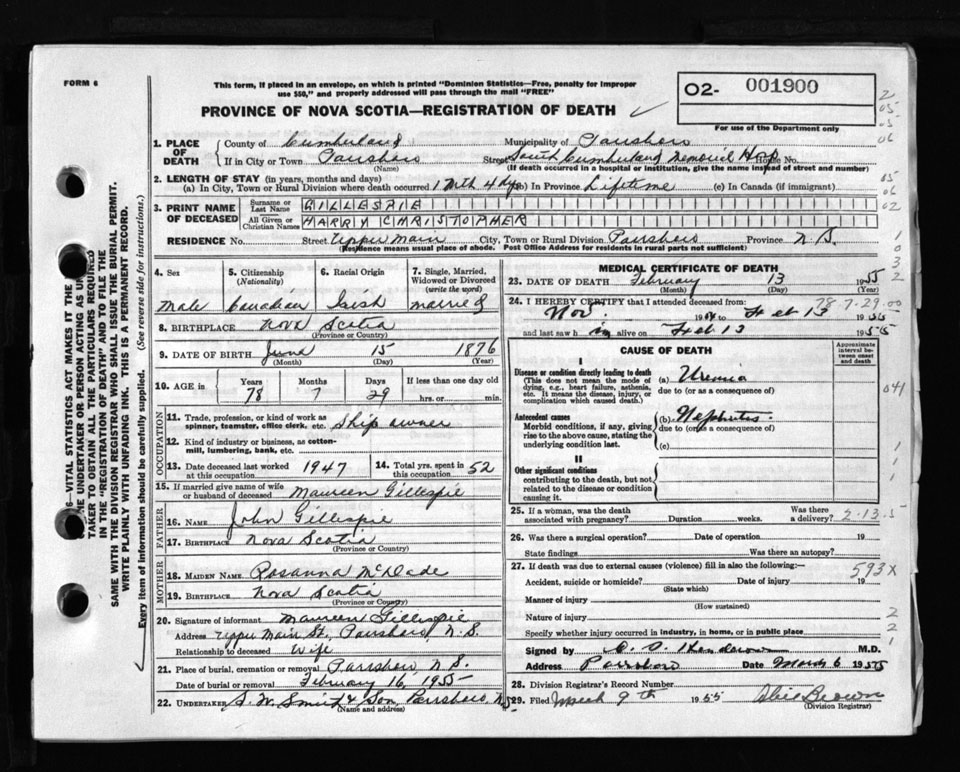 FORM 6
This form, if placed in an envelope, on which is printed "Dominion Statistics—Free, penalty for improper
use $50," and properly addressed will pass through the mail "FREE"
PROVINCE OF NOVA SCOTIA—REGISTRATION OF DEATH
02- 001900
For use of the Department only
1. PLACE OF DEATH
County of Cumberland Municipality of Parrsboro
If in City or Town Parrsboro Street South Cumberland Memorial Hosp House No.
(Name) (If death occurred in a hospital or institution, give the name instead of street and number)
2. LENGTH OF STAY (in years, months and days)
(a) In City, Town or Rural Division where death occurred 1 Mth 4 dys (b) In Province Lifetime (c) In Canada (if immigrant)
3. PRINT NAME OF DECEASED
Surname or Last Name GILLESPIE
All Given or Christian Names HARRY CHRISTOPHER
RESIDENCE No. Street Upper Main City, Town or Rural Division Parrsboro Province N.S.
(Residence means usual place of abode. Post Office Address for residents in rural parts not sufficient)
4. Sex 5. Citizenship (Nationality) 6. Racial Origin 7. Single, Married, Widowed or Divorced (write the word)
Male Canadian Irish married
8. BIRTHPLACE Nova Scotia
(Province or Country)
9. DATE OF BIRTH June 15 1876
(Month) (Day) (Year)
10. AGE in Years Months Days If less than one day old
78 7 29 hrs. or min.
OCCUPATION
11. Trade, profession, or kind of work as
spinner, teamster, office clerk, etc. Ship owner
12. Kind of industry or business, as cotton-
mill, lumbering, bank, etc.
13. Date deceased last worked at this occupation 1947 14. Total yrs. spent in this occupation 52
15. If married give name of wife
or husband of deceased Maureen Gillespie
FATHER
16. NAME John Gillespie
17. BIRTHPLACE Nova Scotia
(Province or Country)
MOTHER
18. MAIDEN NAME Rosanna McDade
19. BIRTHPLACE Nova Scotia
(Province or Country)
20. Signature of informant Maureen Gillespie
Address Upper Main St., Parrsboro, N.S.
Relationship to deceased Wife
21. Place of burial, cremation or removal Parrsboro N.S.
Date of burial or removal February 16, 1955
22. UNDERTAKER S. W. Smith & Son, Parrsboro, N.S.
(Name and address)
MEDICAL CERTIFICATE OF DEATH
23. DATE OF DEATH February 13 1955
(Month) (Day) (Year)
78-7-29-00
24. I HEREBY CERTIFY that I attended deceased from
Nov. 19 to Feb 13 1955
and last saw h im alive on Feb 13 1955
CAUSE OF DEATH
Approximate interval between onset and death
I
Disease or condition directly leading to death
(This does not mean the mode of
dying, e.g., heart failure, asthenia,
etc. It means the disease, injury, or
complication which caused death.)
(a) Uremia
due to (or as a consequence of)
Antecedent causes
Morbid conditions, if any, giving
rise to the above cause, stating the
underlying condition last.
(b) Nephritis
due to (or as a consequence of)
(c)
II
Other significant conditions
contributing to the death, but not
related to the disease or condition
causing it.
25. If a woman, was the death
associated with pregnancy? Duration weeks. Was there a delivery?
2-13-5
26. Was there a surgical operation? Date of operation 19
State findings Was there an autopsy?
27. If death was due to external causes (violence) fill in also the following:—
593X
Accident, suicide or homicide? Date of injury 19
(State which)
Manner of injury
(How sustained)
Nature of injury
Specify whether injury occurred in industry, in home, or in public place
Signed by M.D.
Address Parrsboro Date March 6 1955
28. Division Registrar's Record Number
29. Filed March 9th 1955 Brown
(Division Registrar)
2
05
05
06
05
06
02
1
0
3
2
041
1
1
1
2
2
1
6—VITAL STATISTICS ACT MAKES IT THE
UNDERTAKER OR PERSON ACTING AS
TAKER TO OBTAIN ALL THE PARTICULARS REQUIRED
IN THE "REGISTRATION OF DEATH" AND TO FILE THE
SAME WITH THE DIVISION REGISTRAR WHO SHALL ISSUE THE BURIAL PERMIT.
WRITE PLAINLY WITH UNFADING INK. THIS IS A PERMANENT RECORD.
Every item of information should be carefully supplied. (See reverse side for instructions.)